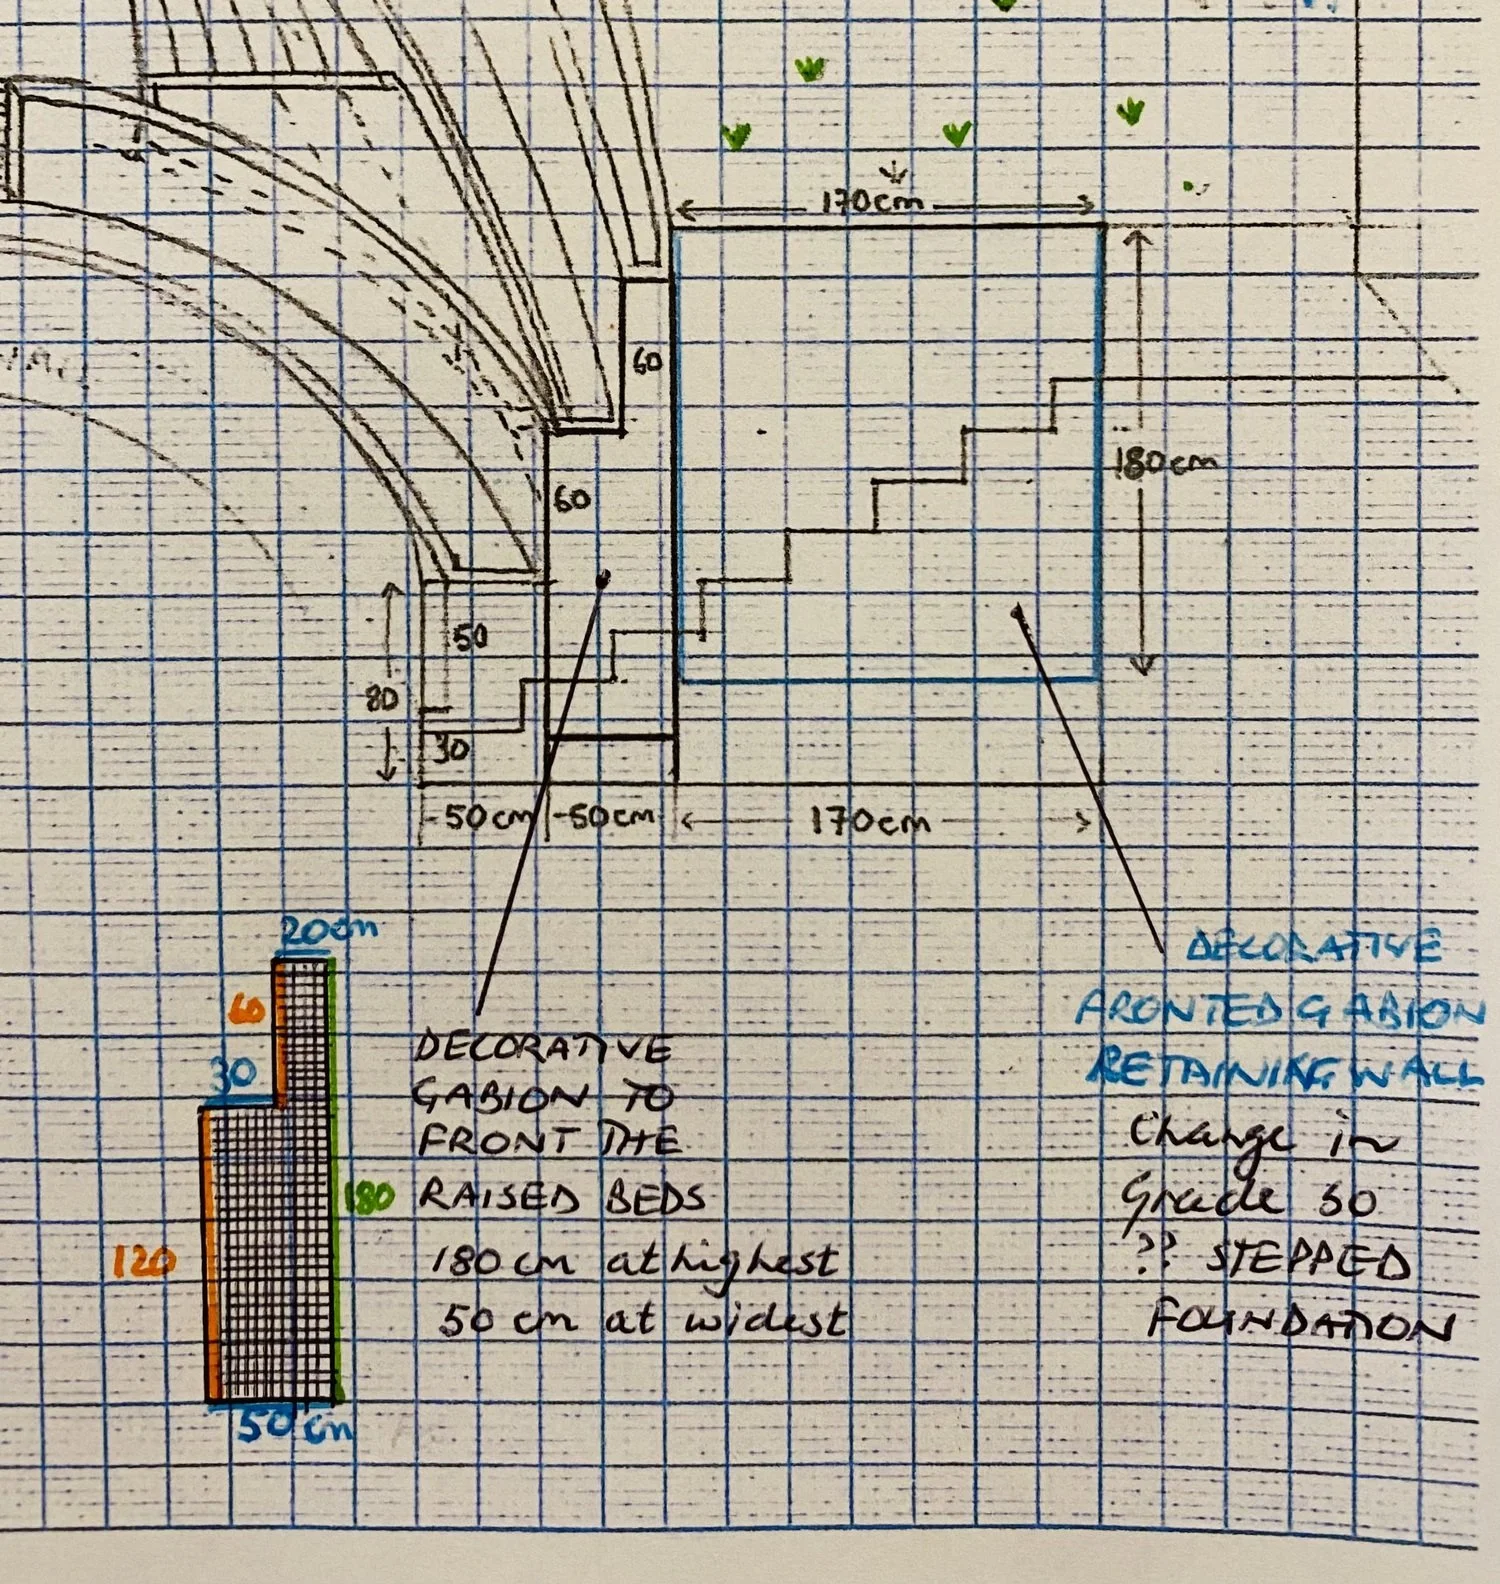 170cm
60
180cm
60
50
80
30
50cm
50cm
170cm
20cm
60
30
180
120
50cm
DECORATIVE
GABION TO
FRONT THE
RAISED BEDS
180 cm at highest
50 cm at widest
DECORATIVE
FRONTED GABION
RETAINING WALL
Change in
Grade so
?? STEPPED
FOUNDATION